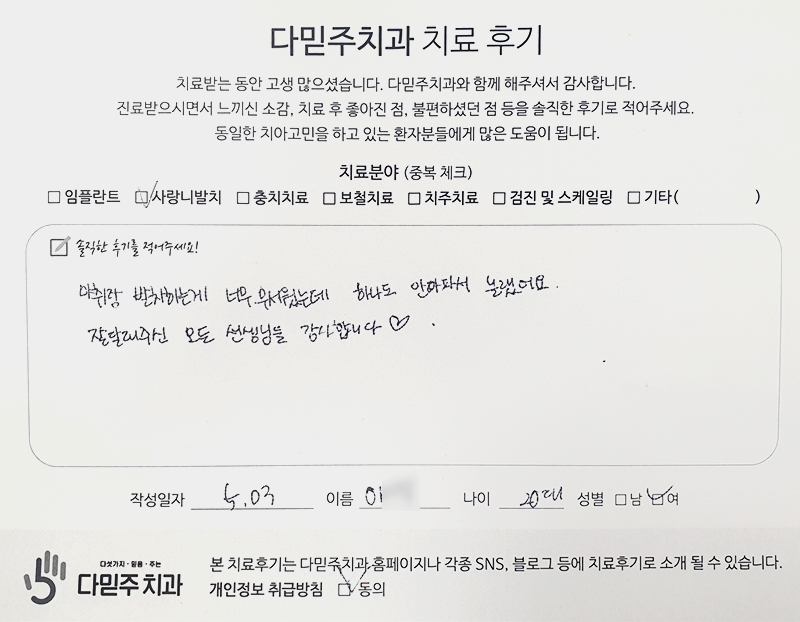 다믿주치과 치료 후기
치료받는 동안 고생 많으셨습니다. 다믿주치과와 함께 해주셔서 감사합니다.
진료받으시면서 느끼신 소감, 치료 후 좋아진 점, 불편하셨던 점 등을 솔직한 후기로 적어주세요.
동일한 치아고민을 하고 있는 환자분들에게 많은 도움이 됩니다.
치료분야 (중복 체크)
☐ 임플란트 ☑ 사랑니발치 ☐ 충치치료 ☐ 보철치료 ☐ 치주치료 ☐ 검진 및 스케일링 ☐ 기타( )
솔직한 후기를 적어주세요!
마취랑 발치하는게 너무 무서웠는데 하나도 안아파서 놀랬어요.
잘달래주신 모든 선생님들 감사합니다 ♡.
작성일자 5.03 이름 이 나이 20대 성별 ☐남 ☑여
다섯가지·믿음·주는
다믿주치과
본 치료후기는 다믿주치과 홈페이지나 각종 SNS, 블로그 등에 치료후기로 소개 될 수 있습니다.
개인정보 취급방침 ☑ 동의